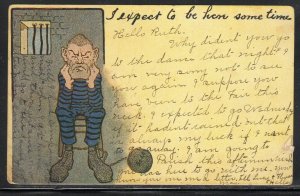 I expect to be here some time.
Hello Ruth:
Why didn't you go
to the dance that night I
am very sorry not to see
you again I suppose you
have been to the Fair this
week. I expect to go Wednesday
if it hadent rained but that
always my luck if I want
to go away. I am going to
Parish this afternoon
has here to go with me.